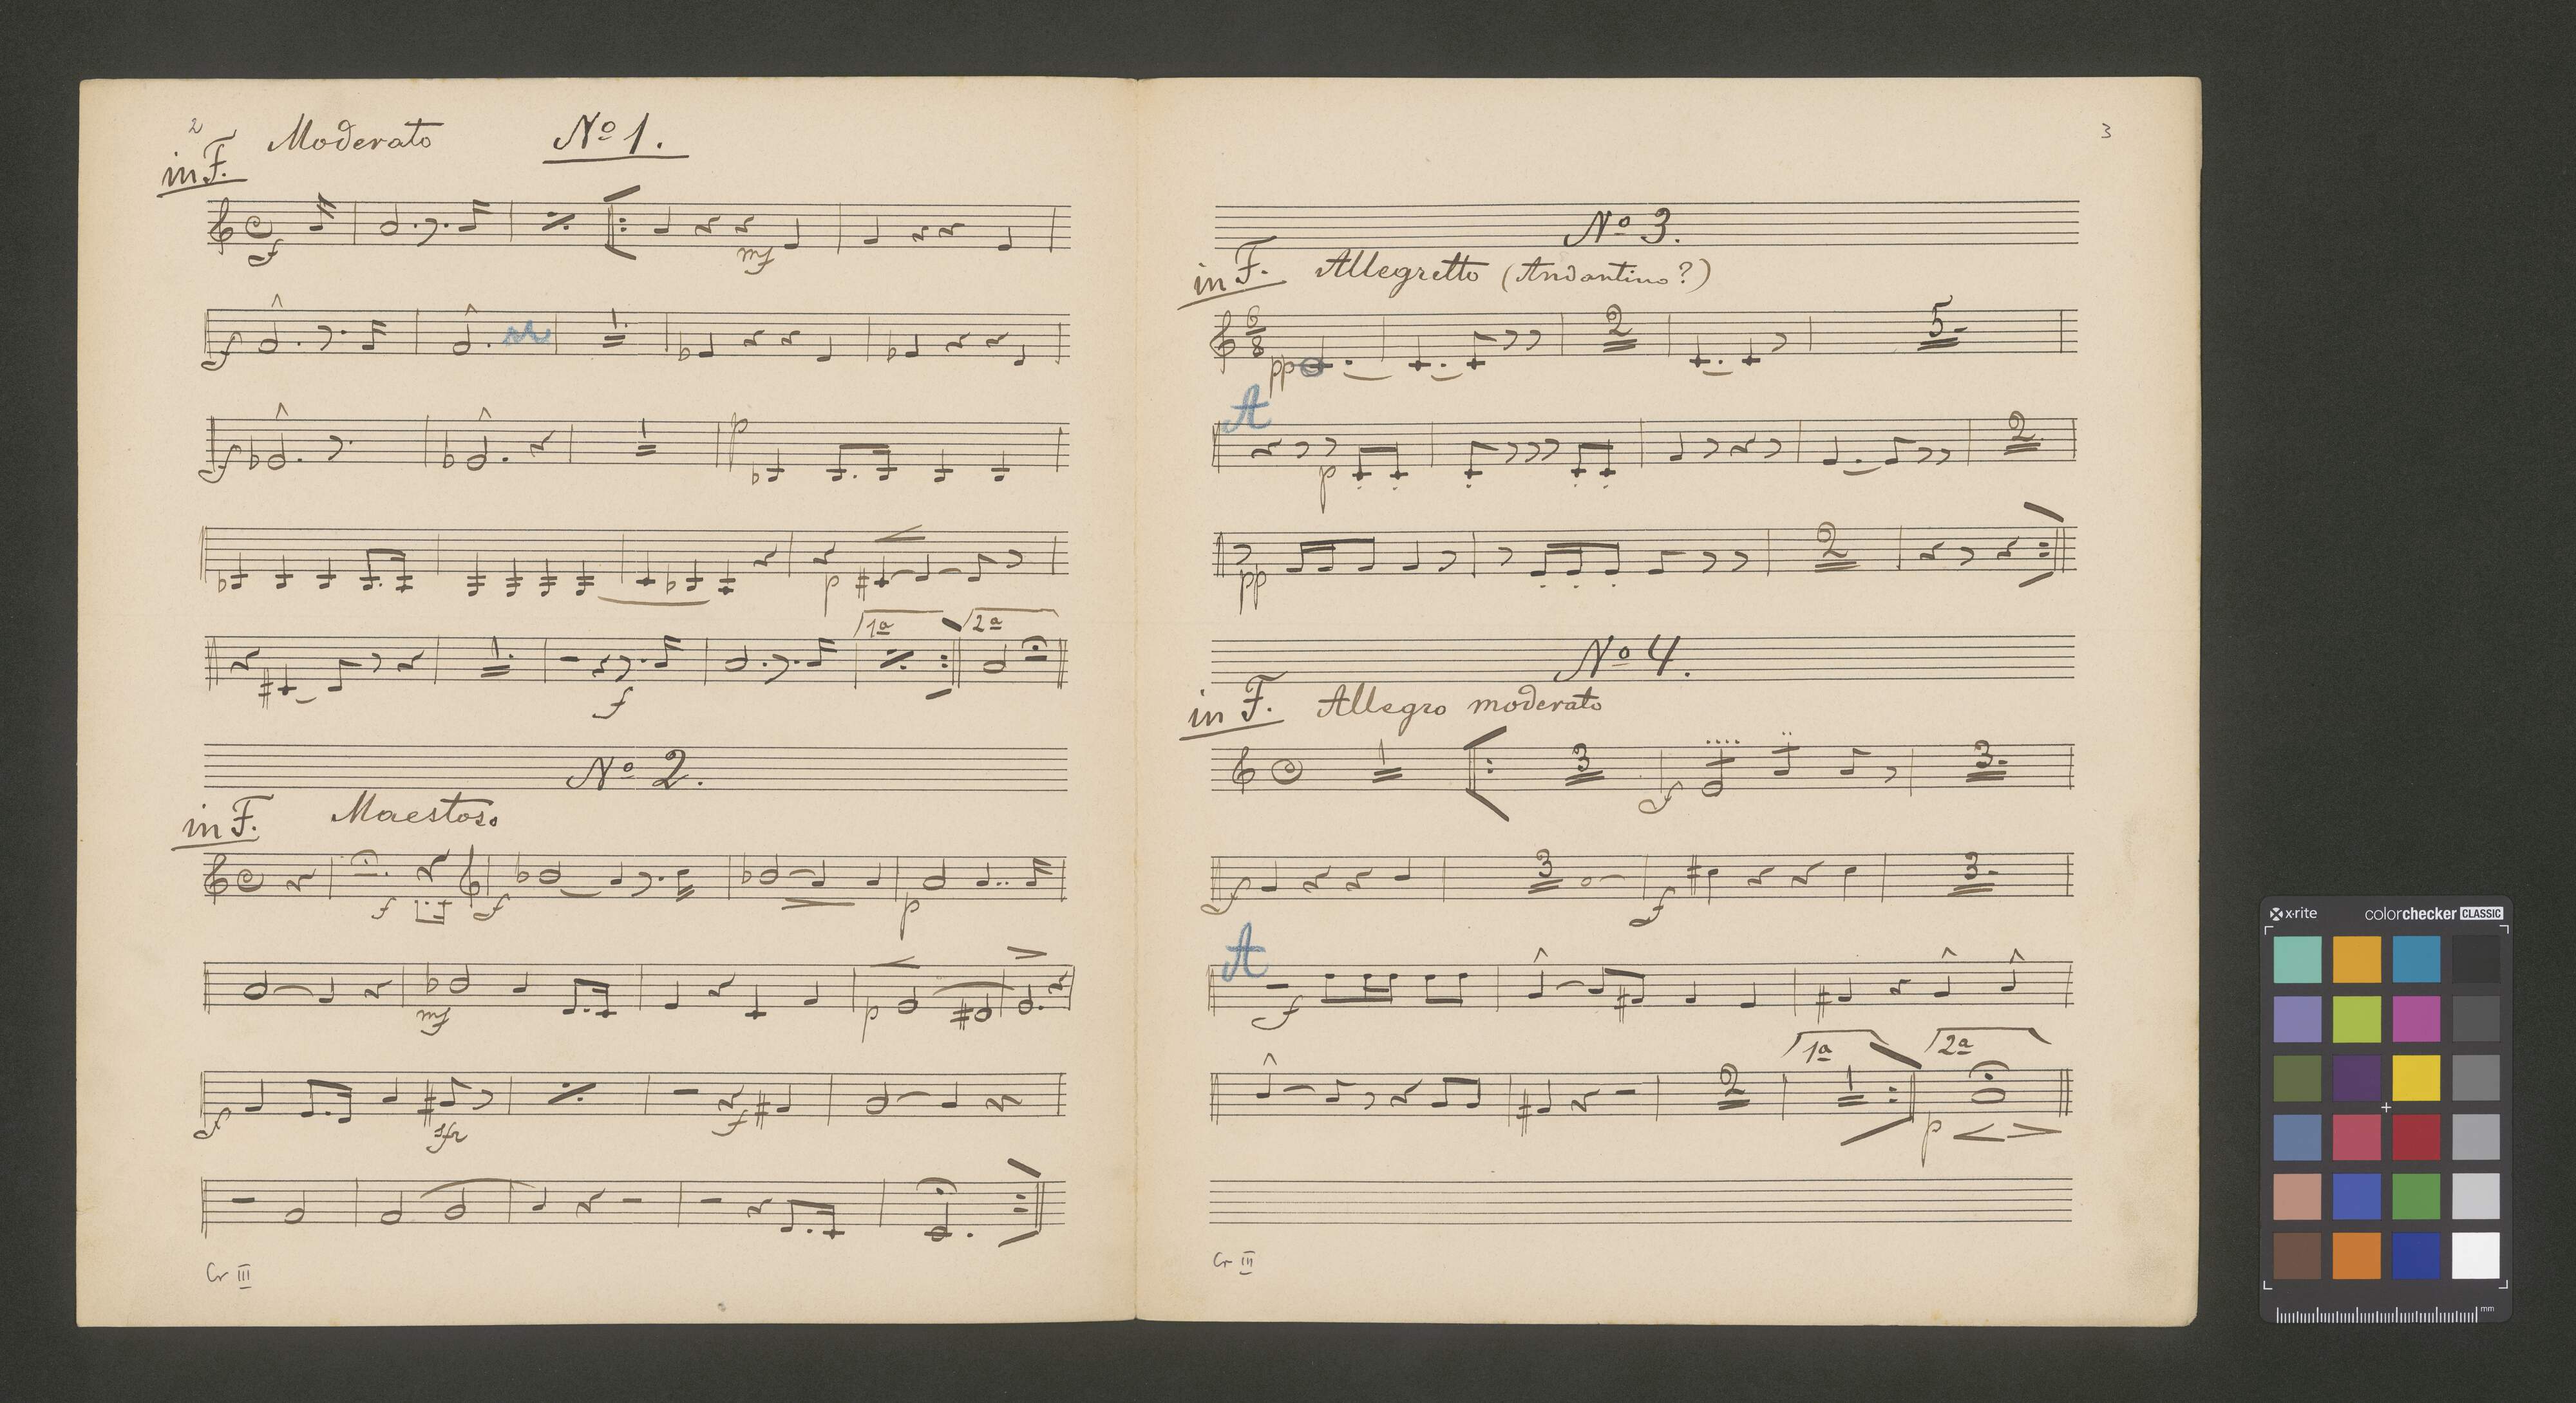 2
Moderato
No 1.
in F.
f
mf
f
1
f
1
p
p
1
1a
2a
f
No 2.
in F.
Maestoso
f
f
p
mf
p
f
sfz
f
Cr III
3
No 3.
in F. Allegretto (Andantino?)
6
8
2
5
pp
A
p
2
pp
2
No 4.
in F. Allegro moderato
1
3
3
f
f
3
f
3
A
f
1a
2a
2
1
p
Cr III
x-rite
colorchecker CLASSIC
mm